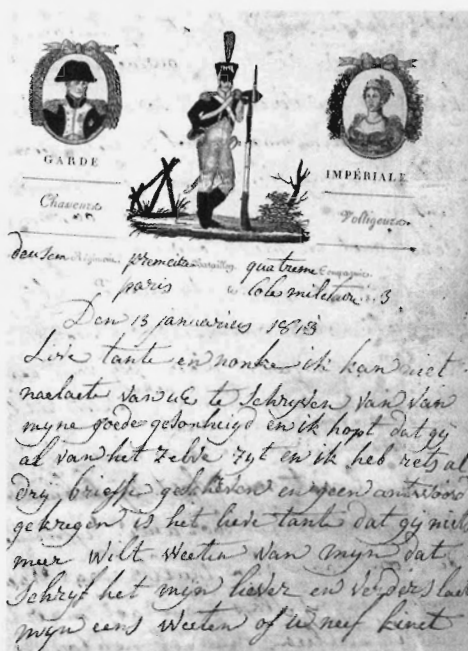 GARDE IMPÉRIALE
Chasseurs Voltigeurs
deusem Régiment premeire Bataillon quatreme Compagnie
a paris a Cole militaire 3
Den 13 januarius 1813
Live tante en nonke ik kan niet
naelaete van uE te schryven van van
myne goede gesonheyd en ik hopt dat gy
al van het zelve zyt en ik heb rets al
dry brieffe geschreven en geen antwoord
gekregen is het lieve tante dat gy niet
meer wilt weeten van myn dat
schryf het myn liever en verders laet
myn eens weeten of u neef